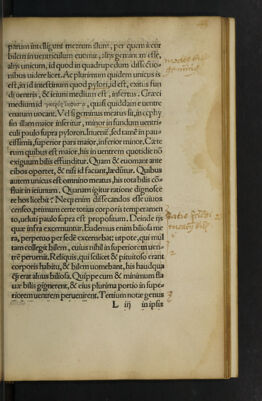 parum intelligunt meatum illum, per quem fertur
bilem in uentriculum euomit, iis geminum esse,
aliis unicum, id quod in quadrupedum dissectio
nibus uidere licet. Ac plurimum quidem unicus is
est, in id intestinum quod pylori, id est, exitus fun
di uentris, & ieiunii medium est, insertus. Græci
medium id
quasi quiddam e uentre
enatum uocant. Vel si geminus meatus sit, in ecphy
sin illam maior inseritur, minor in fundum uentri
culi paulo supra pyloron. Inuenit, sed tamē in pau
cissimis, superior pars maior, inferior minor. Cæte
rum quibus est maior, his in uentrem quotidie nō
exiguum bilis effunditur. Quam & euomant ante
cibos oportet, & nisi id faciant, læditur. Quibus
autem unicus est omnino meatus, his tota bilis cō
fluit in ieiunum. Quanam igitur ratione dignosce
re hos licebit? Neq; enim dissecandos esse uiuos
censeo, primum certe totius corporis temperamen
to, ueluti paulo supra est propositum. Deinde iis
quæ infra excernuntur. Eudemus enim biliosa natu
ra, perpetuo per sedē excernebat: utpote, qui mul
tam colligeret bilem, cuius nihil in superiorem uen
trē peruenit. Reliquis, qui scilicet & pituitoso erant
corporis habitu, & bilem uomebant, his haudqua
q̃ erat aluus biliosa. Quippe cum & minimum fla
uæ bilis gignerent, & eius plurima portio in supe
riorem uentrem perueniret. Tertium notæ genus
L iij in ipsis